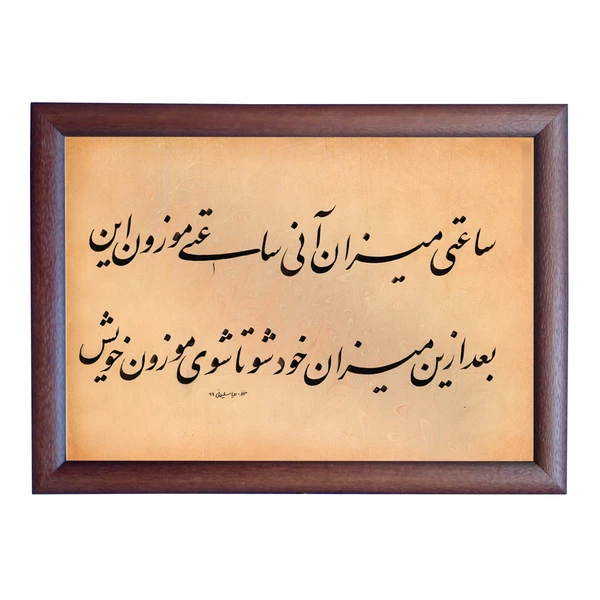 ساعتی میزان آنی ساعتی موزون این
بعد ازین میزان خود شو تا شوی موزون خویش
۹۹